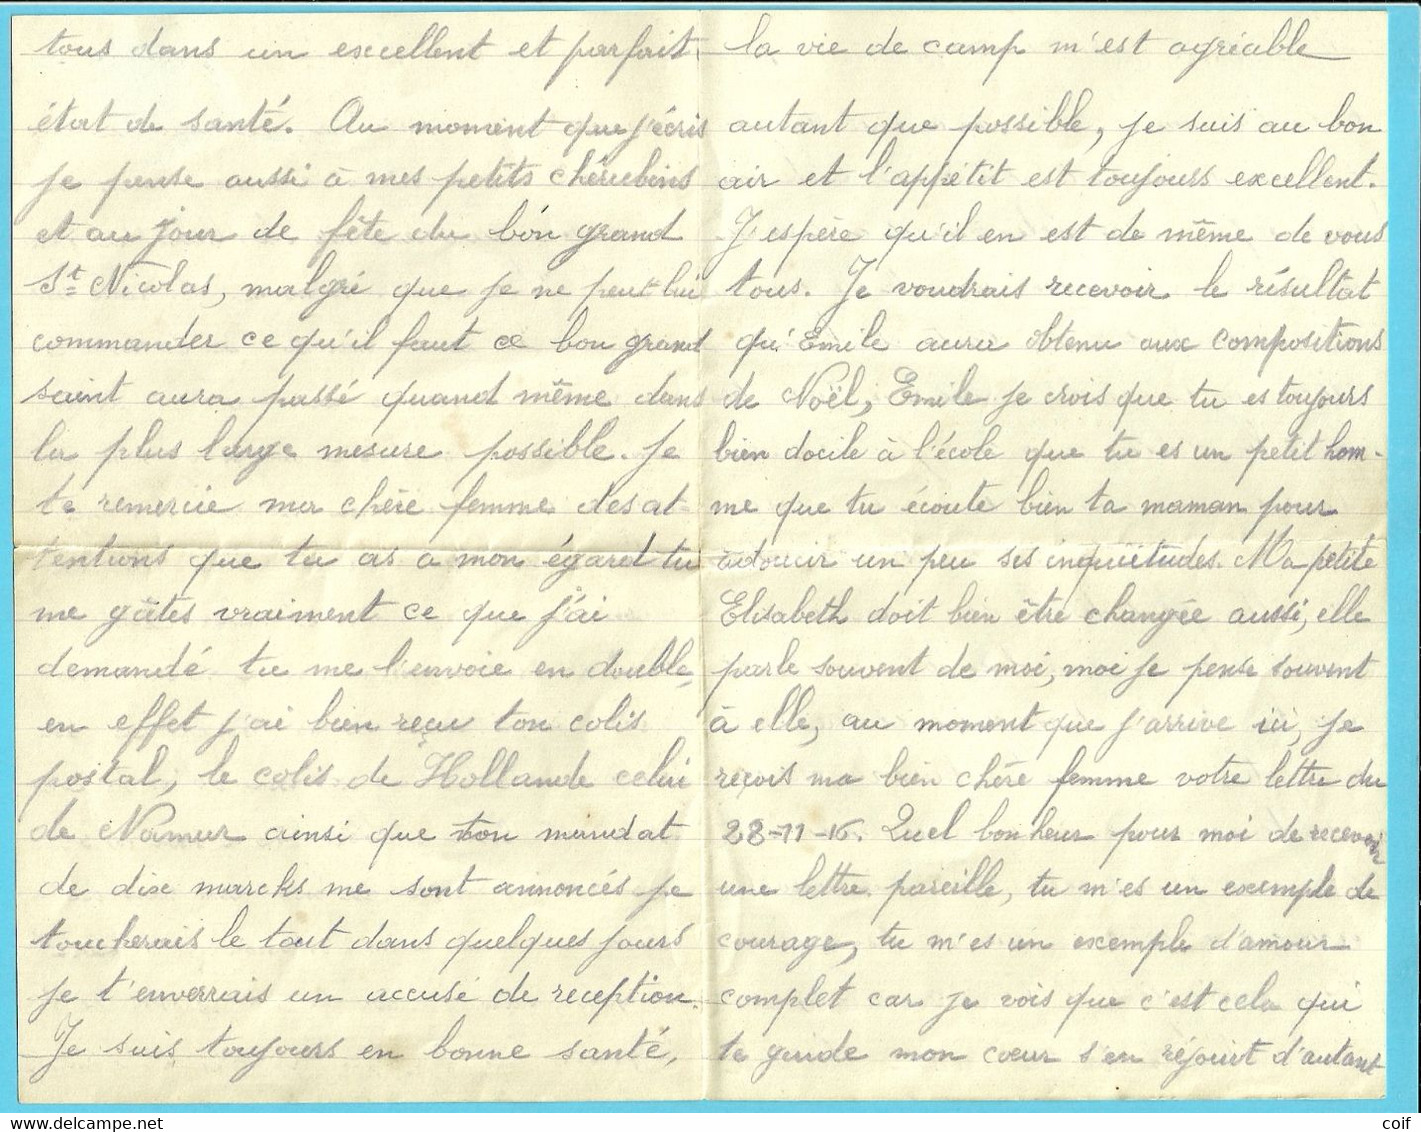 tous dans un excellent et parfait
état de santé. Au moment que j'écris
je pense aussi à mes petits chérubins
et au jour de fête du bon grand
St Nicolas, malgré que je ne peut lui
commander ce qu'il faut ce bon grand
saint aura passé quand même dans
la plus large mesure possible. Je
te remercie ma chère femme des at-
tentions que tu as a mon égard tu
me gâtes vraiment ce que j'ai
demandé tu me l'envoie en double,
en effet j'ai bien reçu ton colis
postal, le colis de Hollande celui
de Namur ainsi que ton mandat
de dix marcks me sont annoncés je
toucherais le tout dans quelques jours
je t'enverrais un accusé de reception.
Je suis toujours en bonne santé,
la vie de camp m'est agréable
autant que possible, je suis au bon
air et l'appétit est toujours excellent.
J'espère qu'il en est de même de vous
tous. Je voudrais recevoir le résultat
qu'Emile aura obtenu aux compositions
de Noël, Emile je crois que tu es toujours
bien docile à l'école que tu es un petit hom-
me que tu écoute bien ta maman pour
adoucir un peu ses inquiètudes. Ma petite
Elisabeth doit bien être changée aussi, elle
parle souvent de moi, moi je pense souvent
à elle, au moment que j'arrive ici, je
reçois ma bien chère femme votre lettre du
28-11-16. Quel bonheur pour moi de recevoir
une lettre pareille, tu m'es un exemple de
courage, tu m'es un exemple d'amour
complet car je vois que c'est cela qui
te guide mon cœur s'en réjouit d'autant
coif